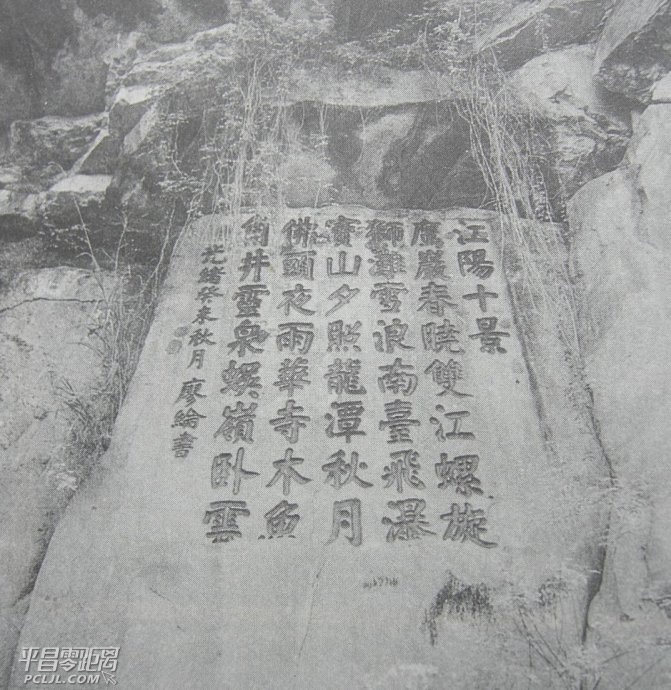 江陽十景
鷹巖春曉雙江螺旋
獅灘雪浪南臺飛瀑
寶山夕照龍潭秋月
佛頭夜雨華寺木魚
角井靈泉螟嶺卧雲
光緒癸未秋月廖綸書
平昌零距离
PCLJL.COM